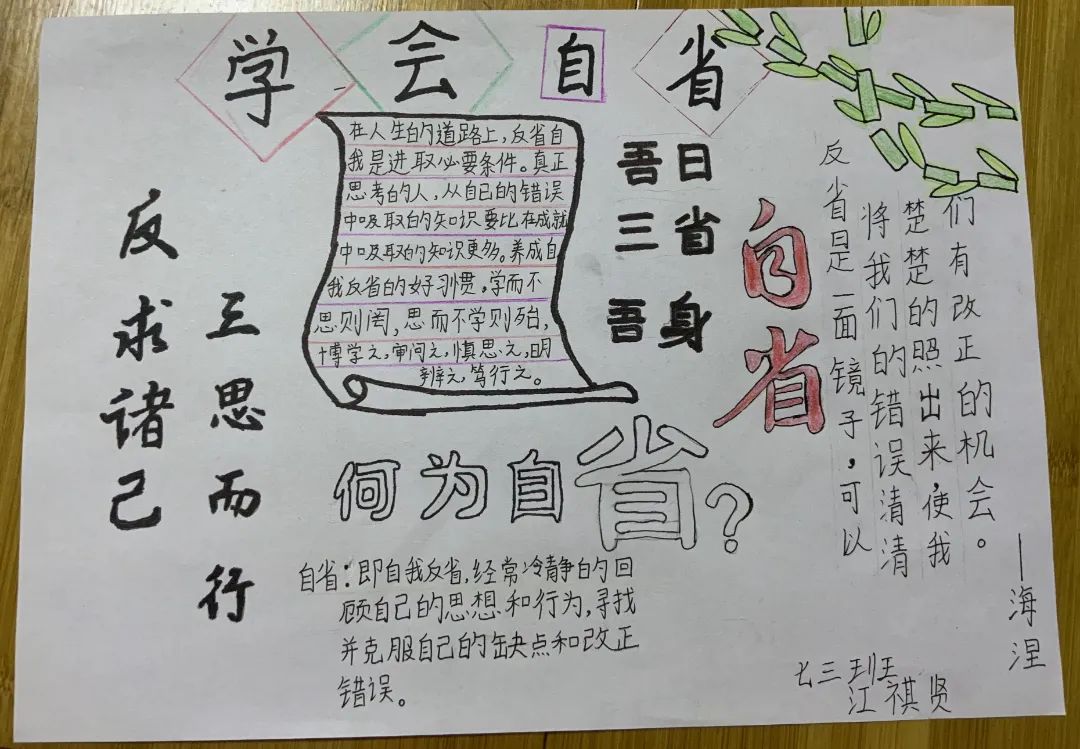 学会自省
在人生的道路上，反省自
我是进取必要条件。真正
思考的人，从自己的错误
中吸取的知识要比在成就
中吸取的知识更多。养成自
我反省的好习惯，学而不
思则罔，思而不学则殆，
博学之，审问之，慎思之，明
辨之，笃行之。
吾日
三省
吾身
反求诸己
三思而行
自省
反省是一面镜子，可以
将我们的错误清清
楚楚的照出来，使我
们有改正的机会。
——海涅
何为自省？
自省：即自我反省，经常冷静的回
顾自己的思想和行为，寻找
并克服自己的缺点和改正
错误。
七三班
江祺贤